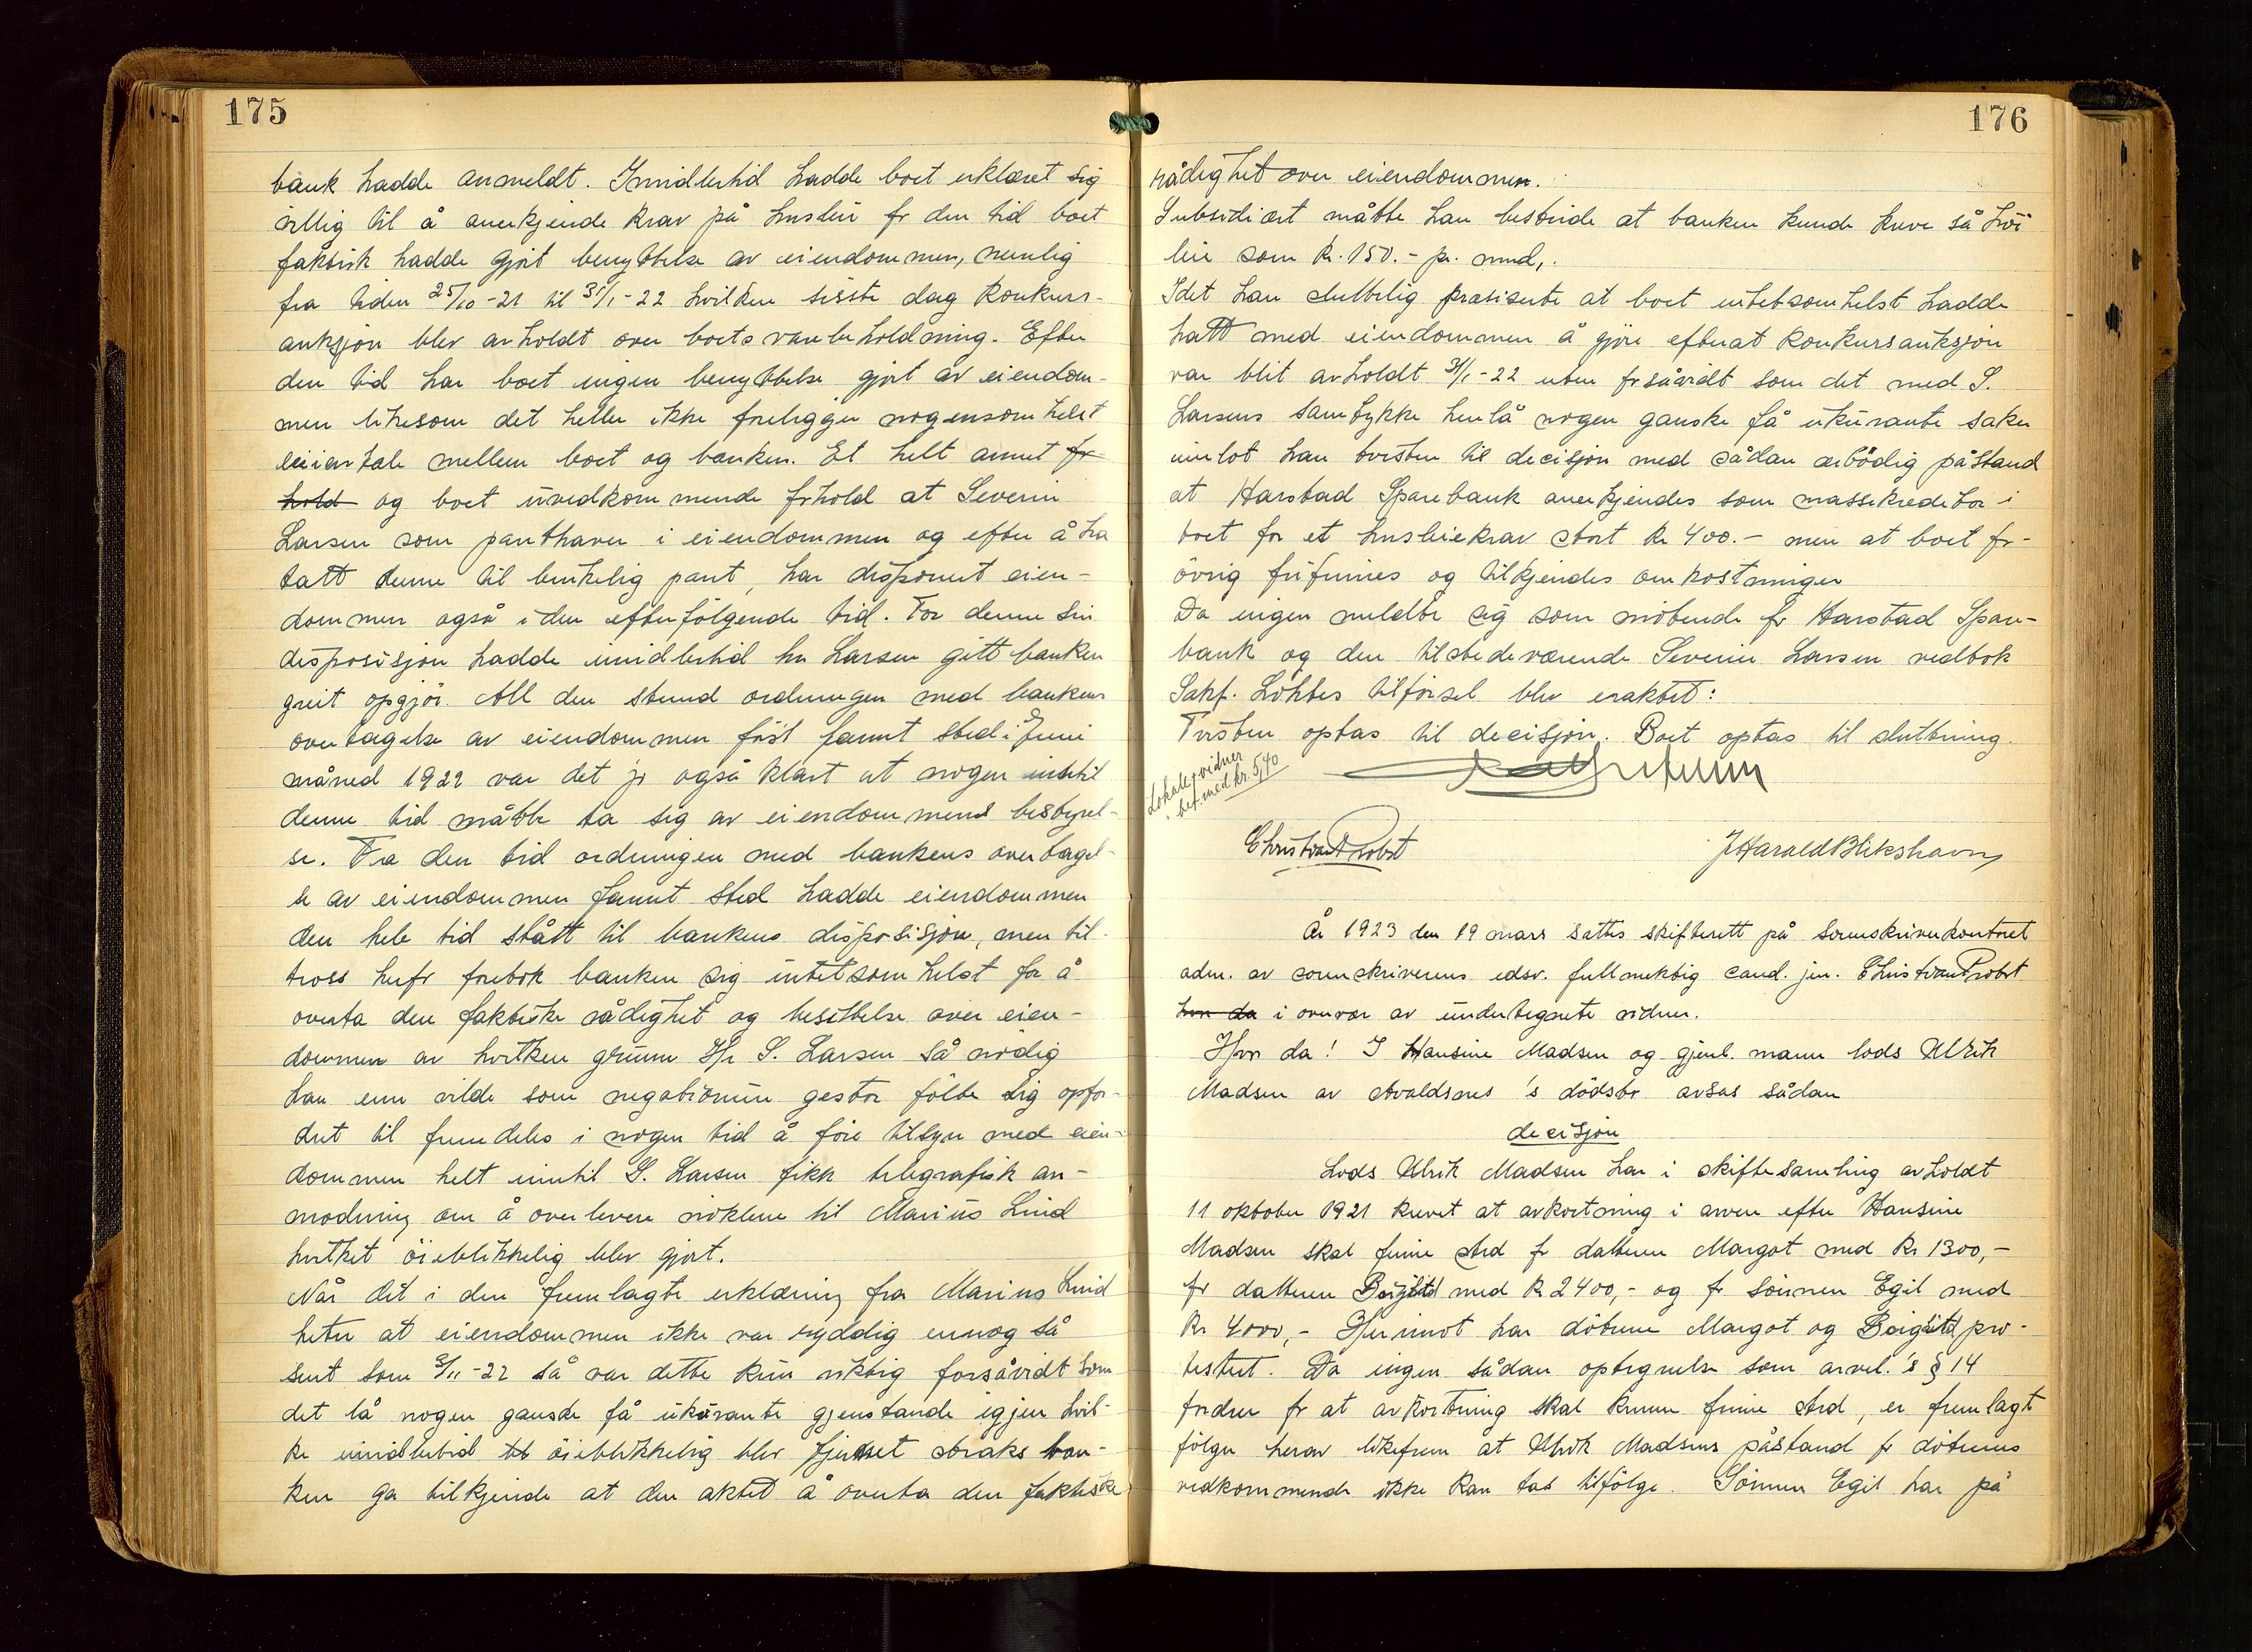 175
bank hadde anmeldt. Imidlertid hadde boet erklæret sig
villig til å anerkjende krav på husleie fr den tid boet
faktisk hadde gjort benyttelse av eiendommen, nemlig
fra tiden 25/10-21 til 31/1-22 hvilken sisste dag konkurs-
auksjon blev avholdt over boets varebeholdning. Efter
den tid har boet ingen benyttelse gjort av eiendom-
men likesom det heller ikke foreligger nogensomhelst
leieavtale mellem boet og banken. Et helt annet fr
hold og boet uvedkommende frhold at Severin
Larsen som panthaver i eiendommen og efter å ha
tatt denne til brukelig pant, har disponert eien-
dommen også i den efterfölgende tid. For denne sin
disposisjon hadde imidlertid hr Larsen gitt banken
greit opgjör. All den stund ordningen med bankens
overtagelse av eiendommen först fannt sted i Juni
måned 1922 var det jo også klart at nogen inntil
denne tid måtte ta sig av eiendommens bestyrel-
se. Fra den tid ordningen med bankens overtagel-
se av eiendommen fannt sted hadde eiendommen
den hele tid stått til bankens disposisjon, men til-
tross herfr foretok banken sig intetsomhelst for å
overta den faktiske rådighet og besittelse over eien-
dommen av hvilken grunn Hr S. Larsen så nödig
han enn vilde som negotiorum gestor fölte sig opfor-
dret til fremdeles i nogen tid å före tilsyn med eien-
dommen helt inntil S. Larsen fikk telegrafisk an-
modning om å overlevere nöklene til Marius Lind
hvilket öieblikkelig blev gjort.
Når det i den fremlagte erklæring fra Marius Lind
heter at eiendommen ikke var ryddig ennog så
sent som 3/11-22 så var dette kun riktig forsåvidt som
det lå nogen ganske få ukurante gjenstande igjen hvil-
ke imidlertid öieblikkelig blev fjernet straks ban-
ken ga tilkjende at den aktet å overta den faktiske
176
rådighet over eiendommen.
Subsidiært måtte han bestride at banken kunde kreve så höi
leie som kr. 150.- pr. mnd,.
Idet han sluttelig præsiserte at boet intetsomhelst hadde
hatt med eiendommen å gjöre efterat konkursauksjon
var blit avholdt 31/1-22 uten frsåvidt som det med S.
Larsens samtykke henlå nogen ganske få ukurante saker
innlot han tvisten til decisjon med sådan ærbödig påstand
at Harstad Sparebank anerkjendes som massekreditor i
boet for et husleiekrav stort kr 400.- men at boet fr-
övrig frifinnes og tilkjendes omkostninger
Da ingen meldte sig som mötende fr Harstad Spare-
bank og den tilstedeværende Severin Larsen vedtok
Sakf. Lohtes tilförsel blev eraktet:
Tvisten optas til decisjon. Boet optas til sluttning.
Lokale + vidner
bet. med kr. 5,40
Christian Probst
J Harald Blikshavn
År 1923 den 19 mars sattes skifterett på sorenskriverkontoret
adm. av sorenskriverens edsv. fullmektig cand. jur. Christian Probst
hvor da i overvær av undertegnete vidner.
Hvor da! I Hansine Madsen og gjenl. mann lods Ulrik
Madsen av Avaldsnes 's dödsbo avsas sådan
decisjon
Lods Ulrik Madsen har i skiftesamling avholdt
11 oktober 1921 krevet at avkortning i arven efter Hansine
Madsen skal finne sted fr datteren Margot med kr 1300,-
fr datteren Borghild med kr 2400,- og fr sönnen Egil med
kr 4000,- Herimot har dötrene Margot og Borghild pro-
testert. Da ingen sådan optegnelse som arvel.'s § 14
fordrer fr at avkortning skal kunne finne sted, er fremlagt
fölger herav likefrem at Ulrik Madsens påstand fr dötrenes
vedkommende ikke kan tas tilfölge. Sönnen Egil har på